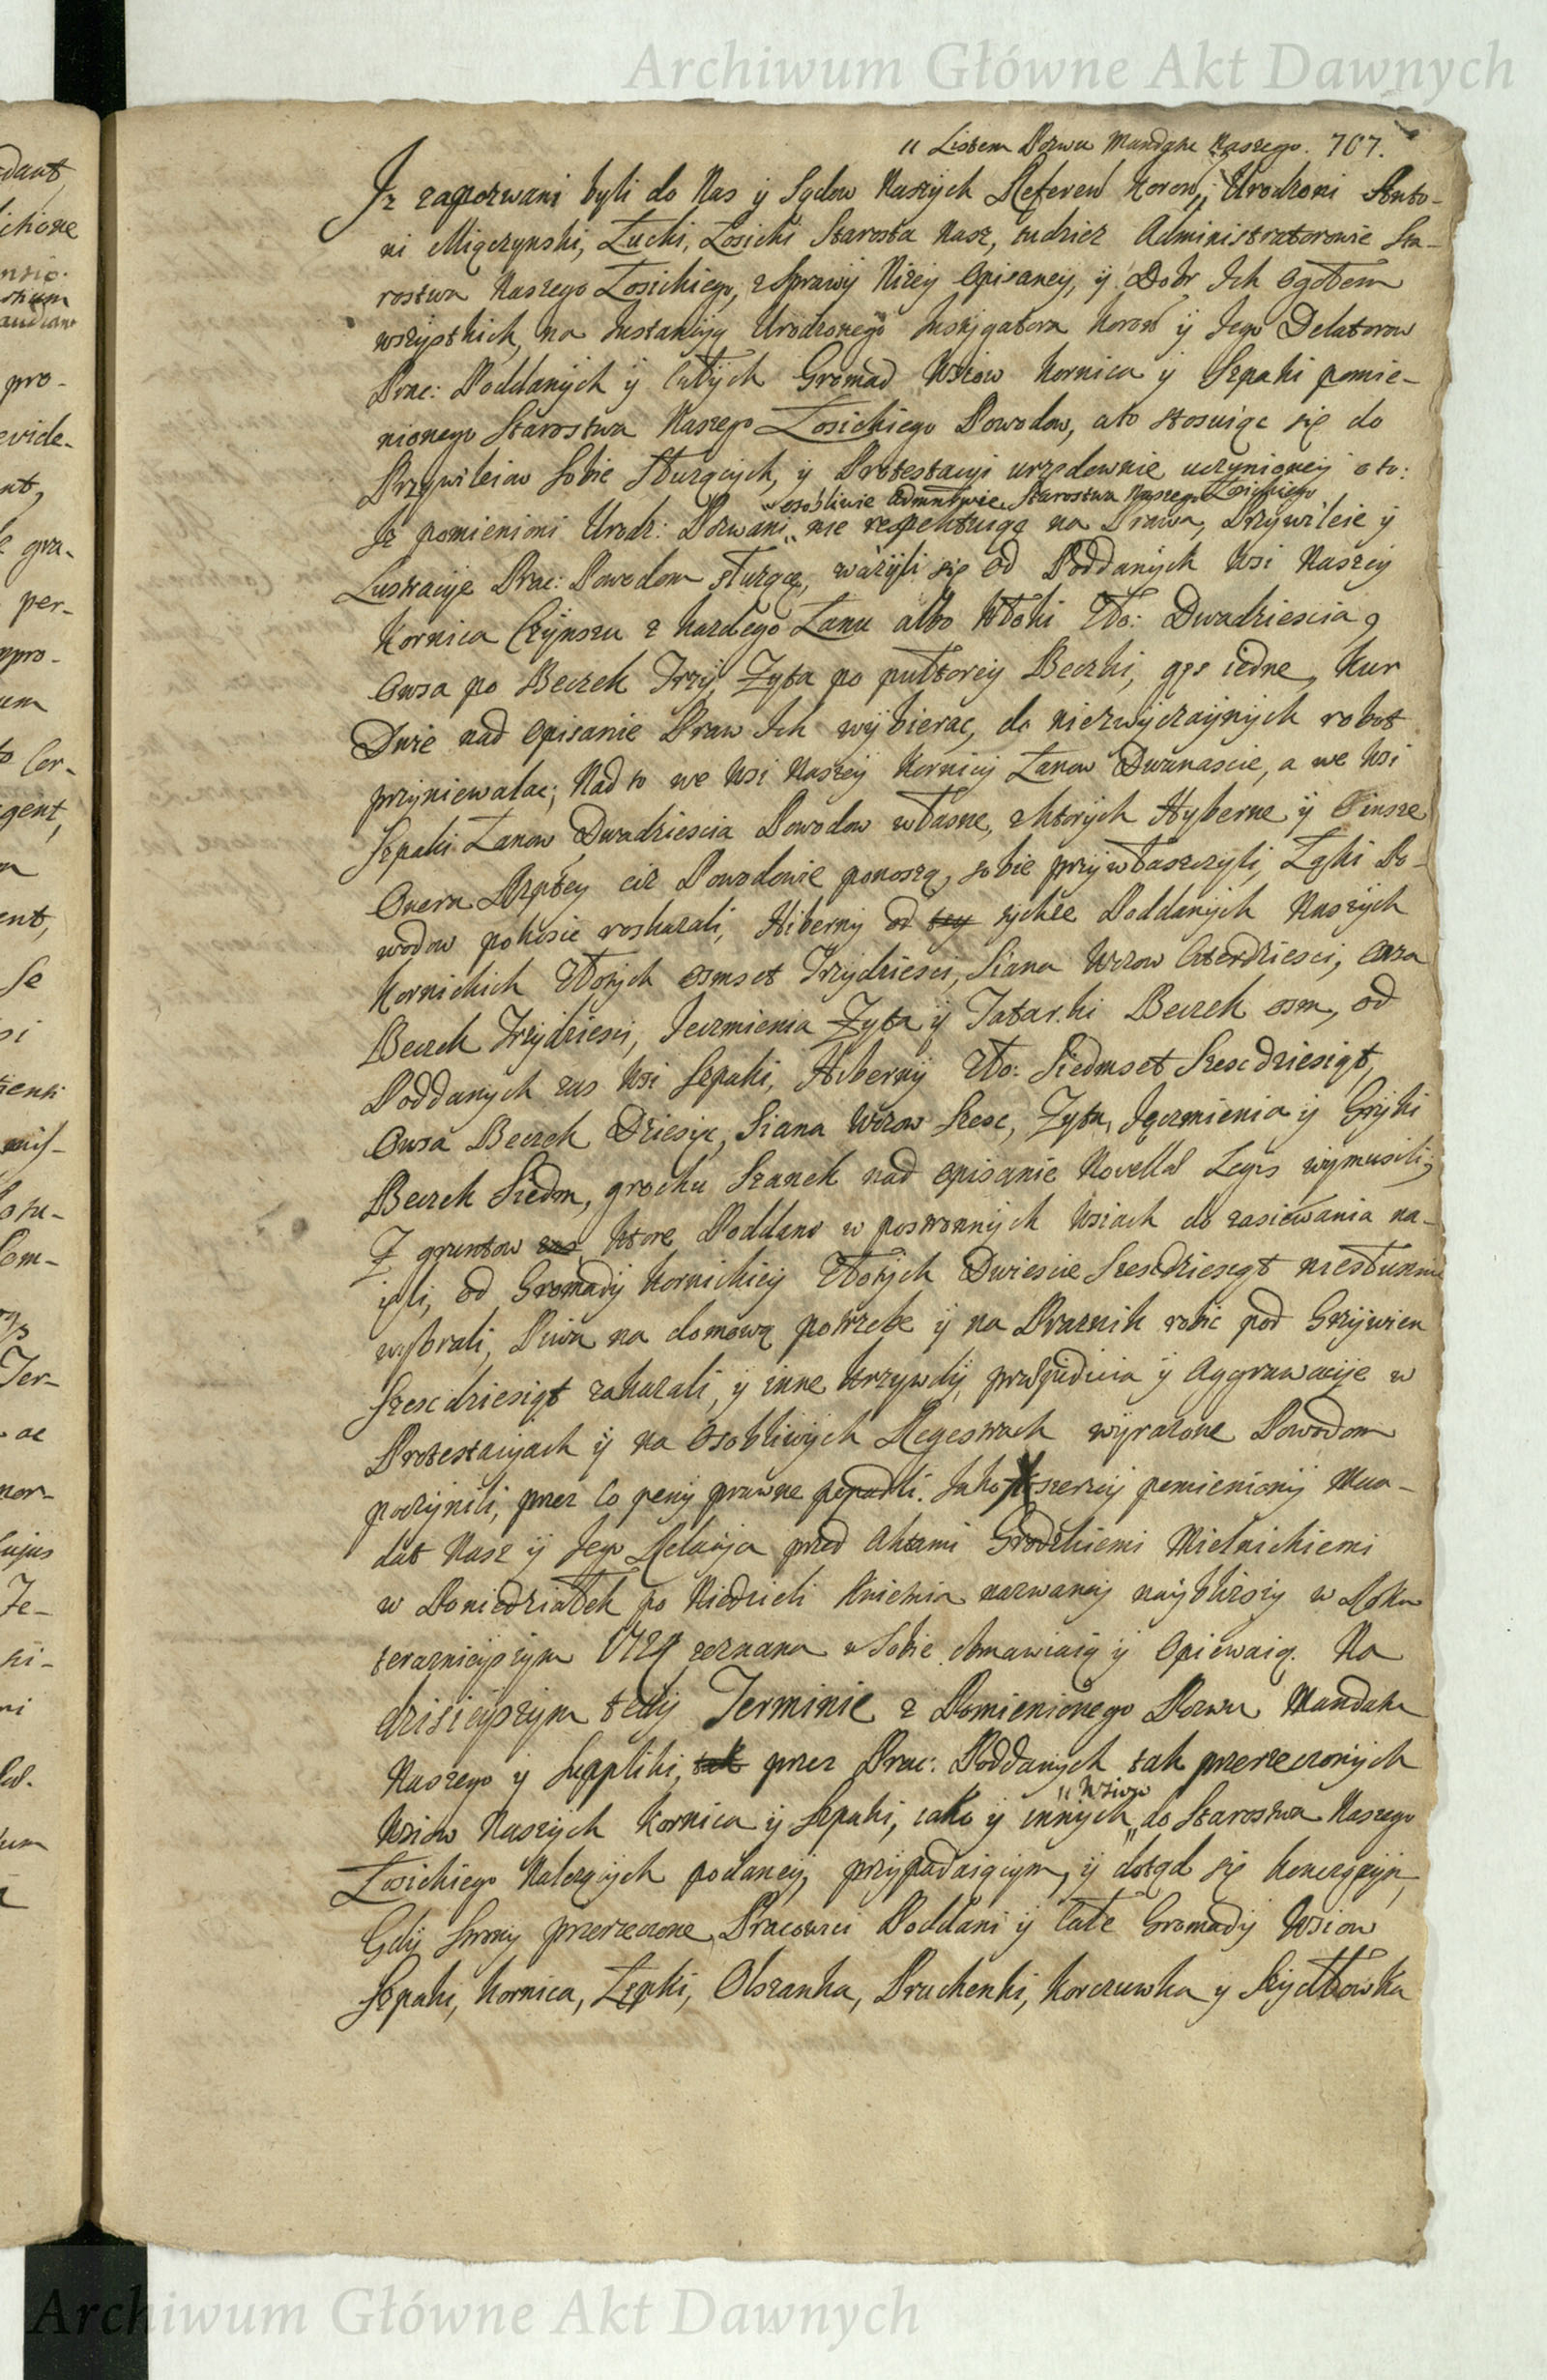 Archiwum Główne Akt Dawnych
" Listem Pozwu Mandatu Naszego. 707.
Iż zapozwani byli do Nas y Sądow Naszych Referen Koron, Urodzoni Anto-
ni Miączynski, Łucki, Łosicki Starosta Nasz, tudziez Administratorowie Sta-
rostwa Naszego Łosickiego, z Sprawy Niżey Opisaney, y Dobr Ich Ogołem
wszystkich, na Instancyą Urodzonego Instygatora Koron y Jego Delatorow
Prac: Poddanych y Całych Gromad Wsiow Kornica y Szpaki pomie-
nionego Starostwa Naszego Łosickiego Powodow, a to stosuiąc się do
Przywileiow Sobie Służących, y Protestacyi urzędownie uczynioney o to:
" osobliwie Admntrwie Starostwa Naszego Łosickiego
Iż pomienioni Urodz: Pozwani " nie respektuiąc na Prawa, Przywileie y
Lustracye Prac: Powodom służące, ważyli się od Poddanych Wsi Naszey
Kornica Czynszu z każdego Łanu albo Włoki Zło: Dwadziescia,
Owsa po Beczek Trzy, Zyta po pułtorey Beczki, gęs iedne, Kur
Dwie nad opisanie Praw Ich wybierac, do niezwyczaynych robot
przyniewalac; Nad to we Wsi Naszey Kornicy Łanow Dwanascie, a we Wsi
Szpaki Łanow Dwadziescia Powodow własne, z ktorych Hyberne y Insze
Onera Rzptey ciż Powodowie ponoszą, sobie przywłaszczyli, Łąki Po-
wodow pokosic roskazali, Hiberny od tey tychże Poddanych Naszych
Kornickich Złotych osmset Trzydziesci, Siana Wozow Czterdziesci, Owsa
Beczek Trzydziesci, Jeczmienia Zyta y Tatarki Beczek osm, od
Poddanych zas Wsi Szpaki, Hiberny Zło: Siedmset Szescdziesiąt,
Owsa Beczek Dziesięc, Siana Wozow Szesc, Zyta, Jęczmienia y Gryki
Beczek Siedm, grochu Szanek nad opisanie Novella Legis wymusili;
Z gruntow zas, ktore Poddani w postronnych Wsiach do zasiewania na-
ięli, od Gromady Kornickiey Złotych Dwiescie Szescdziesiąt niesłusznie
wybrali, Piwa na domową potrzebe y na Praznik robic pod Grzywien
Szescdziesiąt zakazali, y inne krzywdy, praejudicia y Aggrawacye w
Protestacyach y na Osobliwych Regestrach wyrazone Powodom
poczynili, przez Co peny prawne popadli. Jako szerzey pomieniony Man-
dat Nasz y Jego Relacya przed Aktami Grodzkiemi Mielnickiemi
w Poniedziałek po Niedzieli Kwietnia nazwaney naybliższy w Roku
teraznieyszym 1729 zeznana w Sobie obmawiaią y Opiewaią. Na
dzisieyszym tedy Terminie z Pomienionego Pozwu Mandatu
Naszego y Suppliki, tak przez Prac: Poddanych tak przerzeczonych
" Wsiow
Wsiow Naszych Kornica y Szpaki, iako y innych " do Starostwa Naszego
Łosickiego Nalezących podaney, przypadaiącym, y dotąd się kończącym,
Gdy Strony przerzeczone Pracowici Poddani y Całe Gromady Wsiow
Szpaki, Kornica, Łepki, Olszanka, Pruchenki, Korczuwka y Szydłowka
Archiwum Główne Akt Dawnych